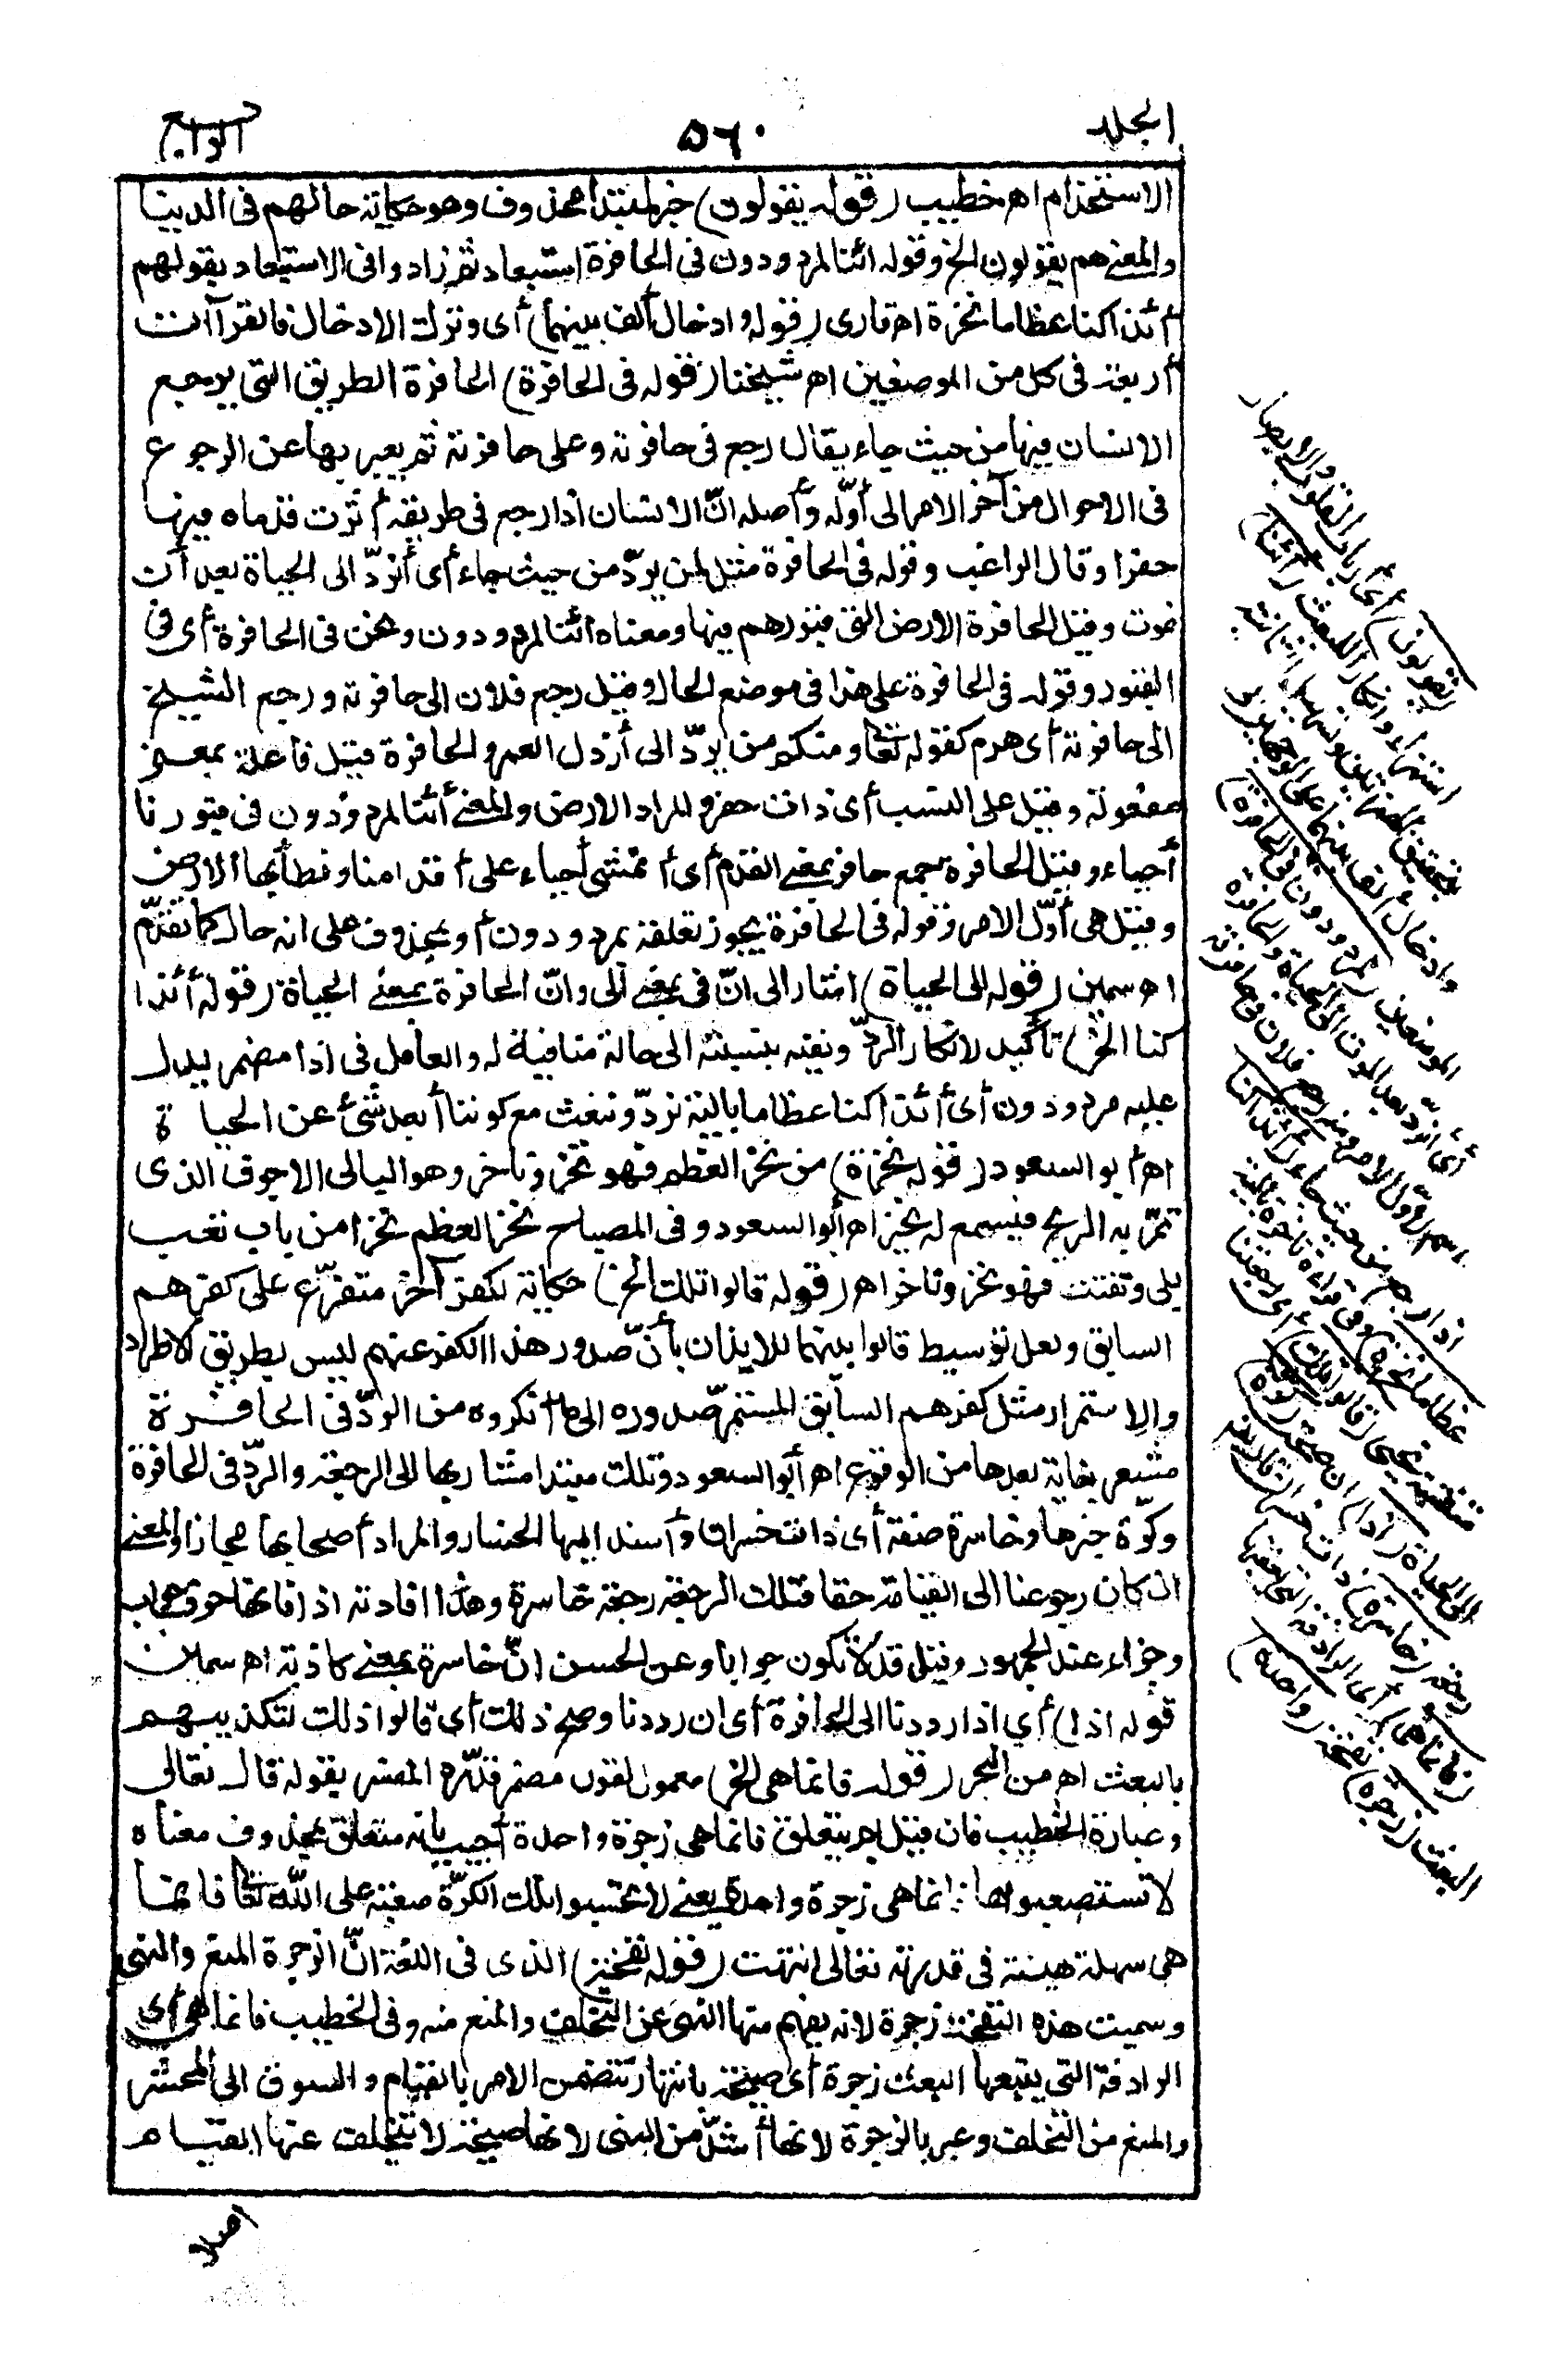 الجلد
٥٦٠
الرابع
الاستخدام اهـ خطيب (قوله يقولون) خبر لمبتدأ محذوف وهو حكاية حالهم فى الدنيا
والمعنى هم يقولون الخ وقوله ائنا لمردودون فى الحافرة استبعاد ثم زادوا فى الاستبعاد بقولهم
أئذا كنا عظاما نخرة اهـ قارى (قوله وادخال ألف بينهما) أى وترك الادخال فالقرآآت
أربعة فى كل من الموضعين اهـ شيخنا (قوله فى الحافرة) الحافرة الطريق التى يرجع
الانسان فيها من حيث جاء يقال رجع فى حافرته وعلى حافرته ثم يعبر بها عن الرجوع
فى الاحوال من آخر الامر الى أوّله وأصله انّ الانسان اذا رجع فى طريقه أثرت قدماه فيها
حفرا وقال الراغب وقوله فى الحافرة مثل لمن يردّ من حيث جاء أى أنردّ الى الحياة بعد أن
نموت وقيل الحافرة الارض التى قبورهم فيها ومعناه ائنا لمردودون ونحن فى الحافرة أى فى
القبور وقوله فى الحافرة على هذا فى موضع الحال وقيل رجع فلان الى حافرته ورجع الشيخ
الى حافرته أى هرم كقوله تعالى ومنكم من يردّ الى أرذل العمر والحافرة قيل فاعلة بمعنى
مفعولة وقيل على النسب أى ذات حفر والمراد الارض والمعنى أئنا لمردودون فى قبورنا
أحياء وقيل الحافرة جمع حافر بمعنى القدم أى أنمشى أحياء على أقدامنا ونطأ بها الارض
وقيل هى أوّل الامر وقوله فى الحافرة يجوز تعلقه بمردودون أو بمحذوف على انه حال كما تقدّم
اهـ سمين (قوله الى الحياة) اشار الى انّ فى بمعنى الى وانّ الحافرة بمعنى الحياة (قوله أئذا
كنا الخ) تأكيد لانكار الردّ ونفيه بنسبته الى حالة منافية له والعامل فى اذا مضمر يدل
عليه مردودون أى أئذا كنا عظاما بالية نردّ ونبعث مع كوننا أبعد شئ عن الحياة
اهـ أبو السعود (قوله نخرة) من نخر العظم فهو نخر وناخر وهو البالى الاجوف الذى
تمرّ به الريح فيسمع له نخير اهـ أبو السعود وفى المصباح نخر العظم نخرا من باب تعب
بلى وتفتت فهو نخر وناخر اهـ (قوله قالوا تلك الخ) حكاية لكفر آخر متفرّع على كفرهم
السابق ولعل توسيط قالوا بينهما للايذان بأنّ صدور هذا الكفر عنهم ليس بطريق الاطراد
والاستمرار مثل كفرهم السابق المستمرّ صدوره الى ما أنكروه من الردّ فى الحافرة
مشعر بغاية بعدها من الوقوع اهـ أبو السعود وتلك مبتدا مشار بها الى الرجفة والردّ فى الحافرة
وكرّة خبرها وخاسرة صفة أى ذات خسران وأسند اليها الخسار والمراد أصحابها مجازا والمعنى
ان كان رجوعنا الى القيامة حقا فتلك الرجفة رجفة خاسرة وهذا افادته اذا فانها حرف جواب
وجزاء عند الجمهور وقيل قد لا تكون جوابا وعن الحسن انّ خاسرة بمعنى كاذبة اهـ سمين
قوله اذا) أى اذا رددنا الى الحافرة أى ان رددنا وصح ذلك أى قالوا ذلك لتكذيبهم
بالبعث اهـ من البحر (قوله فانما هى الخ) معمول لقول مضمر قدّره المفسر بقوله قال تعالى
وعبارة الخطيب فان قيل بم يتعلق فانما هى زجرة واحدة أجيب بانه متعلق بمحذوف معناه
لا تستصعبوها انما هى زجرة واحدة يعنى لا تحسبوا تلك الكرّة صعبة على الله تعالى فانها
هى سهلة هينة فى قدرته تعالى انتهت (قوله نفخة) الذى فى اللغة انّ الزجرة المنع والنهى
وسميت هذه النفخة زجرة لانه يفهم منها النهى عن التخلف والمنع منه وفى الخطيب فانما هى أى
الرادفة التى يتبعها البعث زجرة أى صيحة بانتهار تتضمن الامر بالقيام والسوق الى المحشر
والمنع من التخلف وعبر بالزجرة لانها أشدّ من النهى لانها صيحة لا يتخلف عنها القيام
اصلا
(يقولون) أى أرباب القلوب والابصار
استهزاء وانكارا للبعث (أئنا)
بتحقيق الهمزتين وتسهيل الثانية
وادخال ألف بينهما على الوجهين فى
الموضعين (لمردودون فى الحافرة)
أى أنردّ بعد الموت الى الحياة والحافرة
اسم لاوّل الامر ومنه رجع فلان فى حافرته
اذا رجع من حيث جاء (أئذا كنا
عظاما نخرة) وفى قراءة ناخرة بالية
متفتتة نحيى (قالوا تلك) أى رجعتنا
الى الحياة (اذا) ان صحت (كرّة)
رجعة (خاسرة) ذات خسران قال تعالى
(فانما هى) أى الرادفة التى يعقبها
البعث (زجرة) نفخة (واحدة)